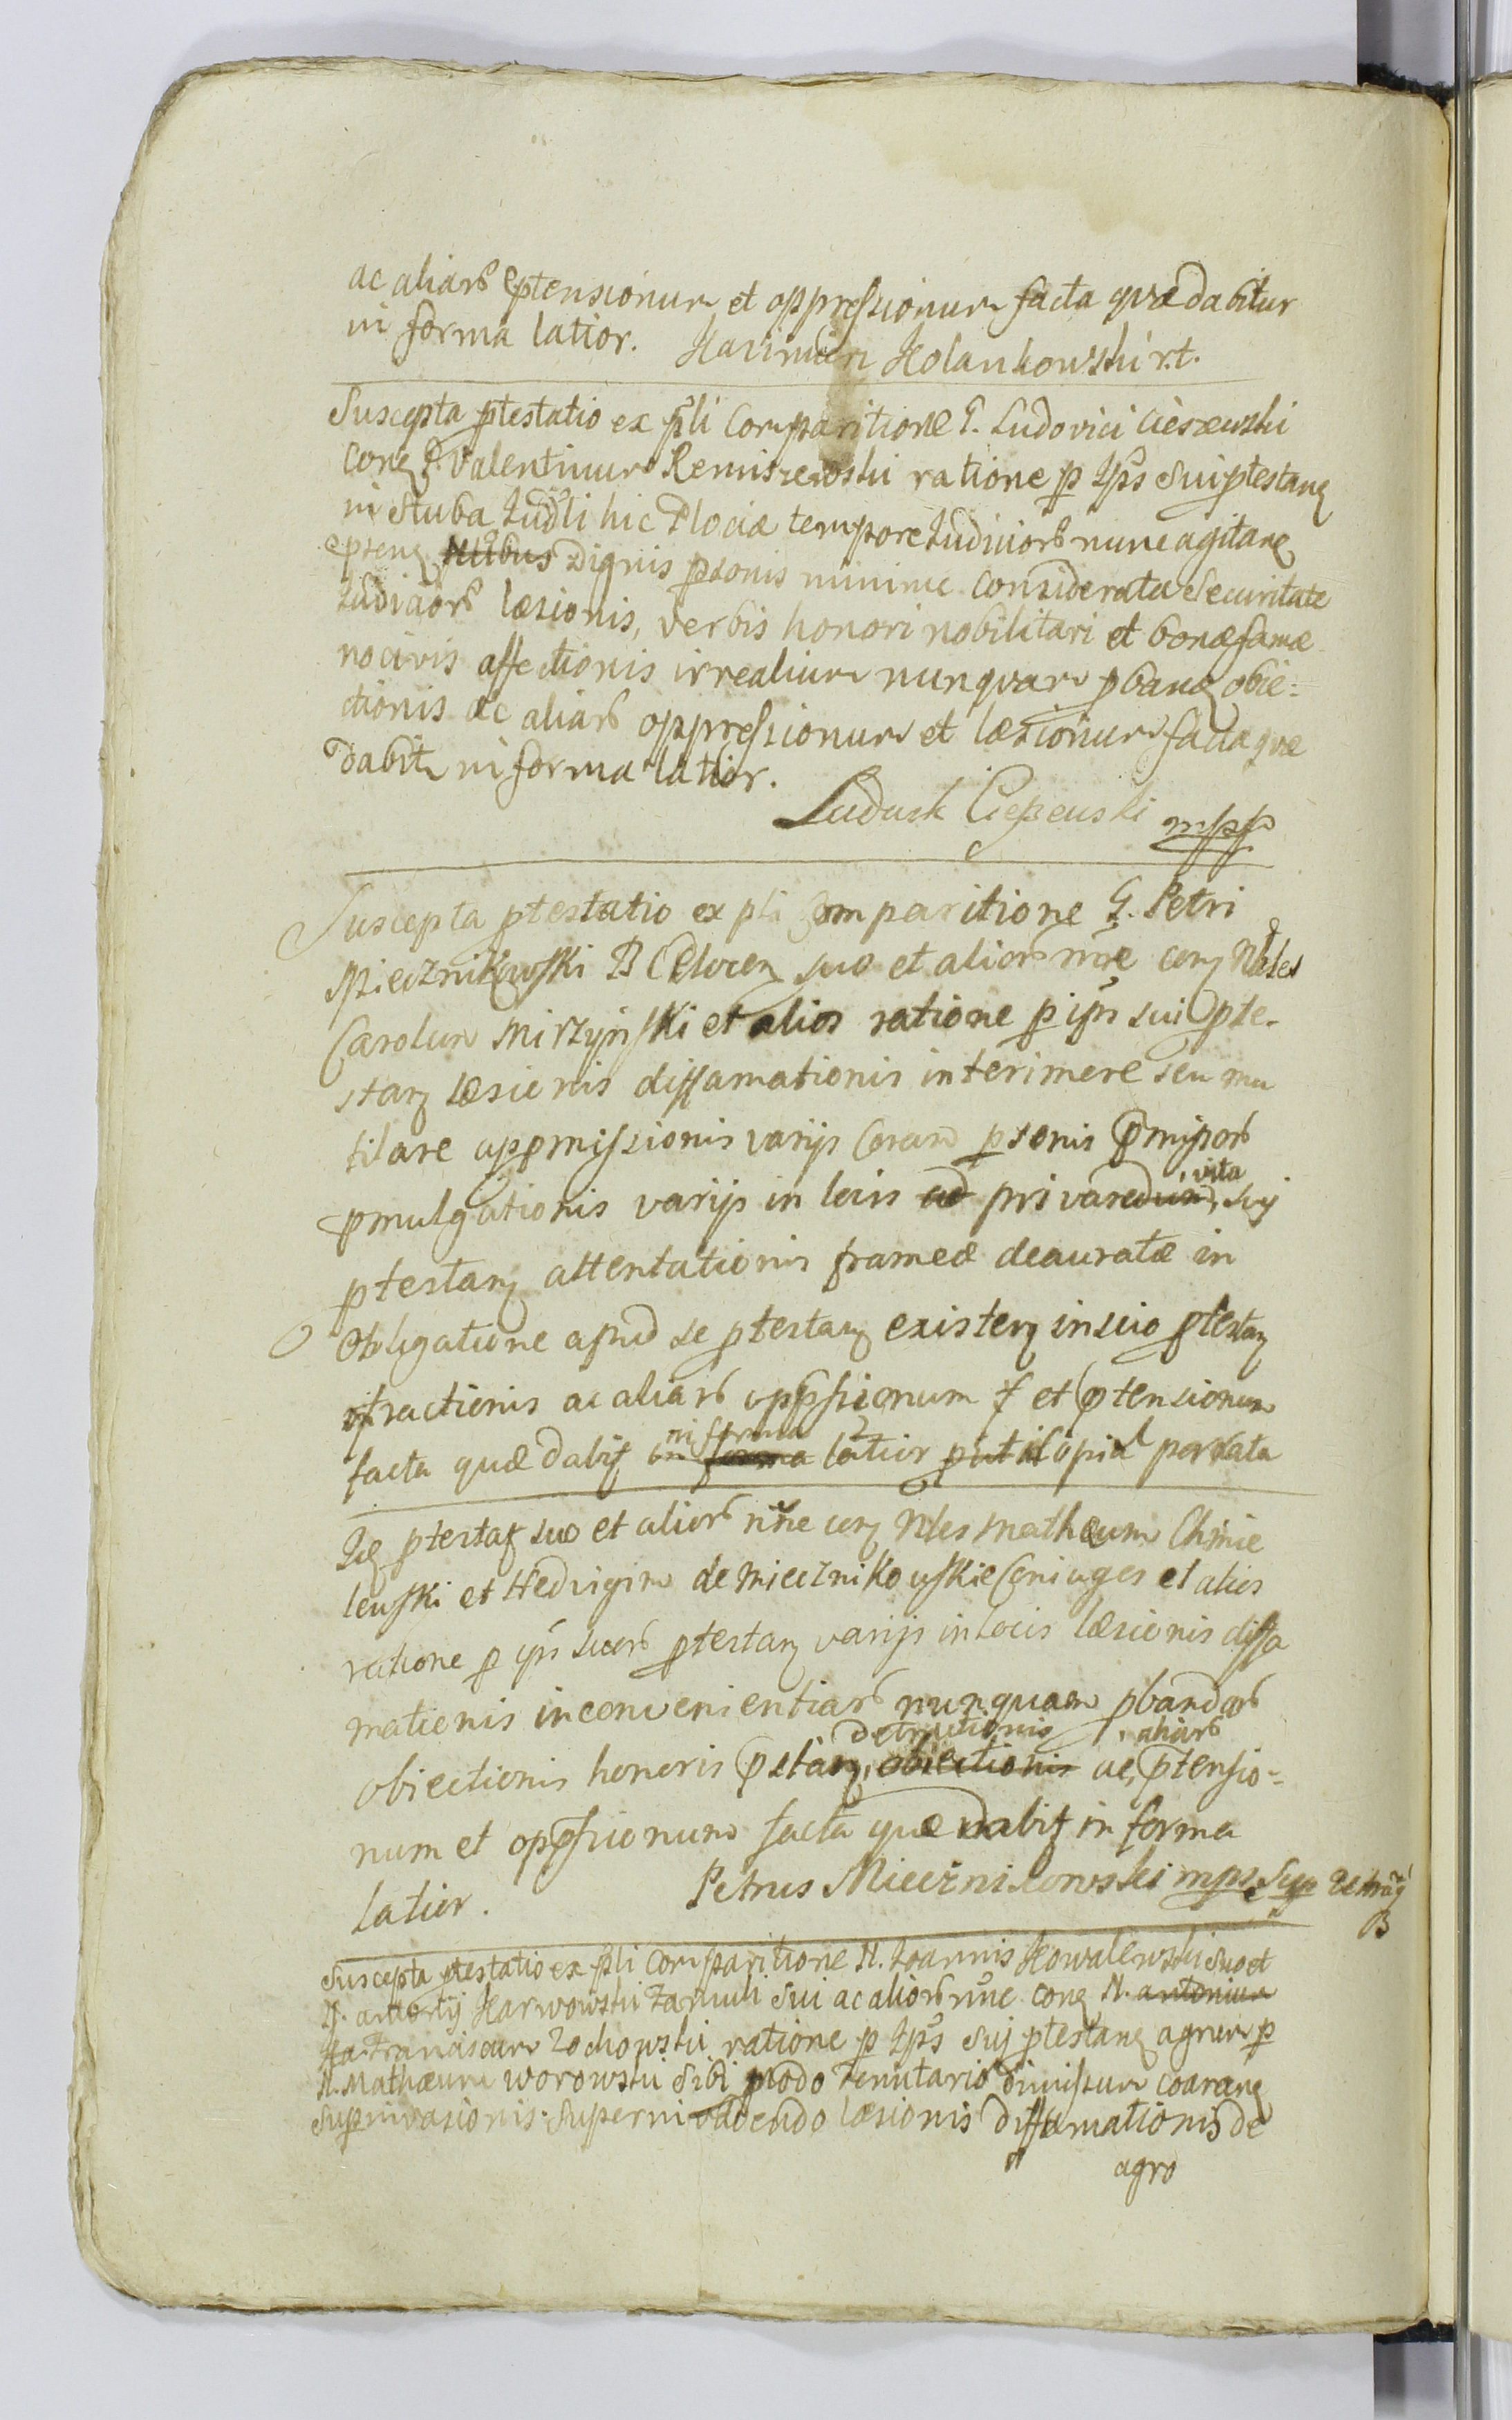 ac aliarũ ptensionum et oppressionum facta quæ dabitur
in forma latior. Kazimierz Kolankowski r.t.
Suscepta ptestatio ex pñli Comparitione G. Ludovici Cieszewski
Con̄ G. Valentinum Remiszewski ratione p Ips̃ sui ptestan̄
in Stuba Iudl̃i hic Plociæ tempore Iudiciorũ nunc agitan̄
dignis psonis minime Considerata Securitate
Iudiciorũ læsionis, verbis honori nobilitari et bonæ famæ
nocivis affectionis irrealium nunquam pban̄ obie:
ctionis ac aliarũ oppressionum et læsionum facta quæ
dabit̃ in forma latior.
Ludwik Cieszewski mpp
Suscepta ptestatio ex pñli Comparitione G. Petri
Miecznikowski B Plocen̄ suo et aliorũ nõie con̄ Nbles
Carolum Mirzynski et alios ratione p ips̃ sui pte-
stan̄ læsionis diffamationis interimere seu mu
tilare appromissionis varijs Coram psonis pmissorũ
pmulgationis varijs in locis ad privandum vita sui
ptestan̄ attentationis frameæ deauratæ in
Obligatione apud se ptestan̄ existen̄ in suo ptestan̄
ac aliarũ oppssionum et ptensionum
facta quæ dabit̃ in forma in forma latior
Idē ptestat̃ suo et aliorũ nõie con̄ Nbles Mathæum Chmie
lewski et Hedvigim de Miecznikowskie Coniuges et alios
ratione p ips̃ suorũ ptestan̄ varijs in locis læsionis diffa
mationis inconvenientiarũ nunquam pbandarũ
detractionis aliarũ
obiectionis honoris ptestan̄, obiectionis ac, ptensio=
num et oppssionum facta quæ dabit̃ in forma
latior. Petrus Miecznikowski mps
Suscepta ptestatio ex pñli Comparitione N. Ioannis Kowalewski Suo et
N. Antonij Karwowski Famuli Sui ac aliorũ nõie con̄ N. Antonium
Franciscum Zochowski ratione p Ips̃ Sui ptestan̄ agrum p
N. Mathæum Worowski Sibi modo Tenutario dimissum coaran̄
Superinvasionis. Superni læsionis diffamationis de
agro